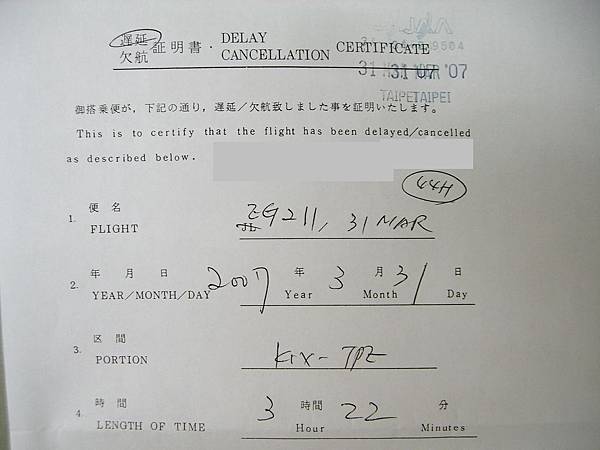 遅延 DELAY
欠航 証明書・CANCELLATION CERTIFICATE
31 MAR '07
TAIPEI TAIPEI
御搭乗便が，下記の通り，遅延／欠航致しました事を証明いたします。
This is to certify that the flight has been delayed/cancelled
as described below.
44H
1. 便名 FLIGHT EG211, 31 MAR
2. 年 月 日 2007 年 3 月 31 日
YEAR/MONTH/DAY Year Month Day
3. 区間 PORTION KIX-TPE
4. 時間 3 時間 22 分
LENGTH OF TIME Hour Minutes